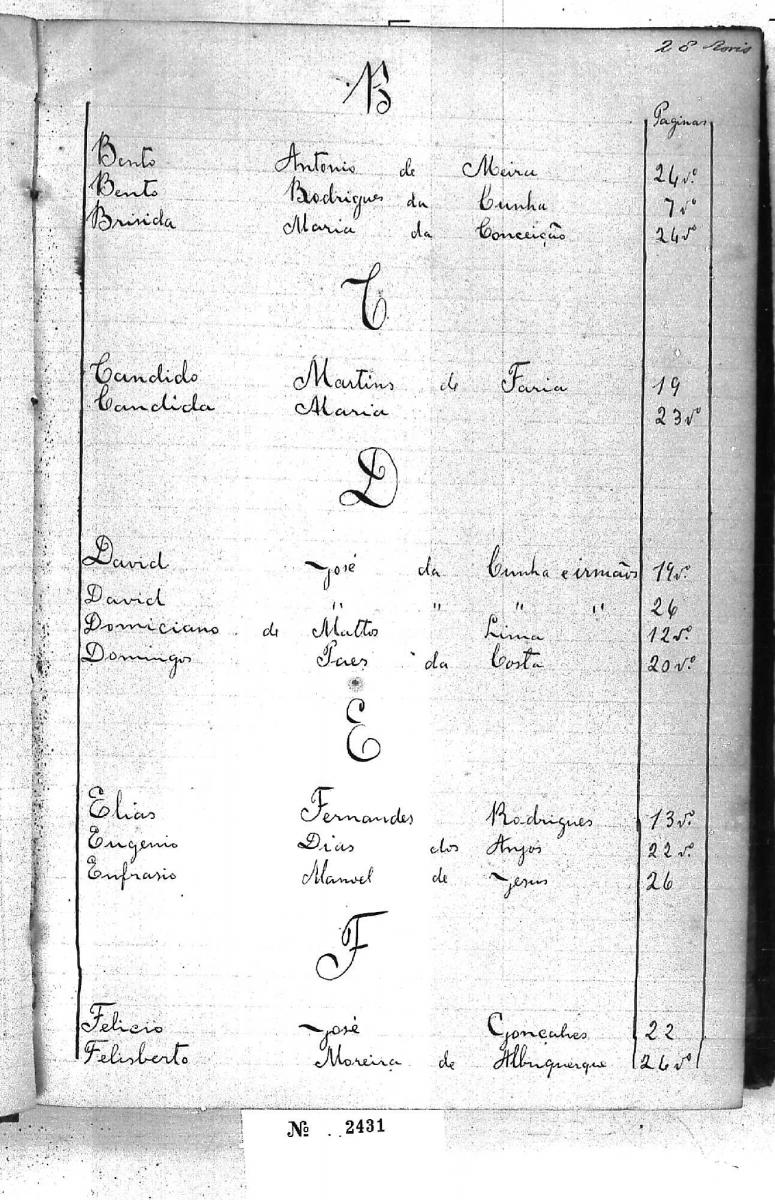 28
B
Paginas
Bento Antonio de Meira 24vº
Bento Rodrigues da Cunha 7vº
Brisida Maria da Conceição 24vº
C
Candido Martins de Faria 19
Candida Maria 23vº
D
David José da Cunha e irmãos 19vº
David " " " " 26
Domiciano de Mattos Lima 12vº
Domingos Paes da Costa 20vº
E
Elias Fernandes Rodrigues 13vº
Eugenio Dias dos Anjos 22vº
Eufrasio Manoel de Jesus 26
F
Felicio José Gonçalves 22
Felisberto Moreira de Albuquerque 26vº
Nº 2431